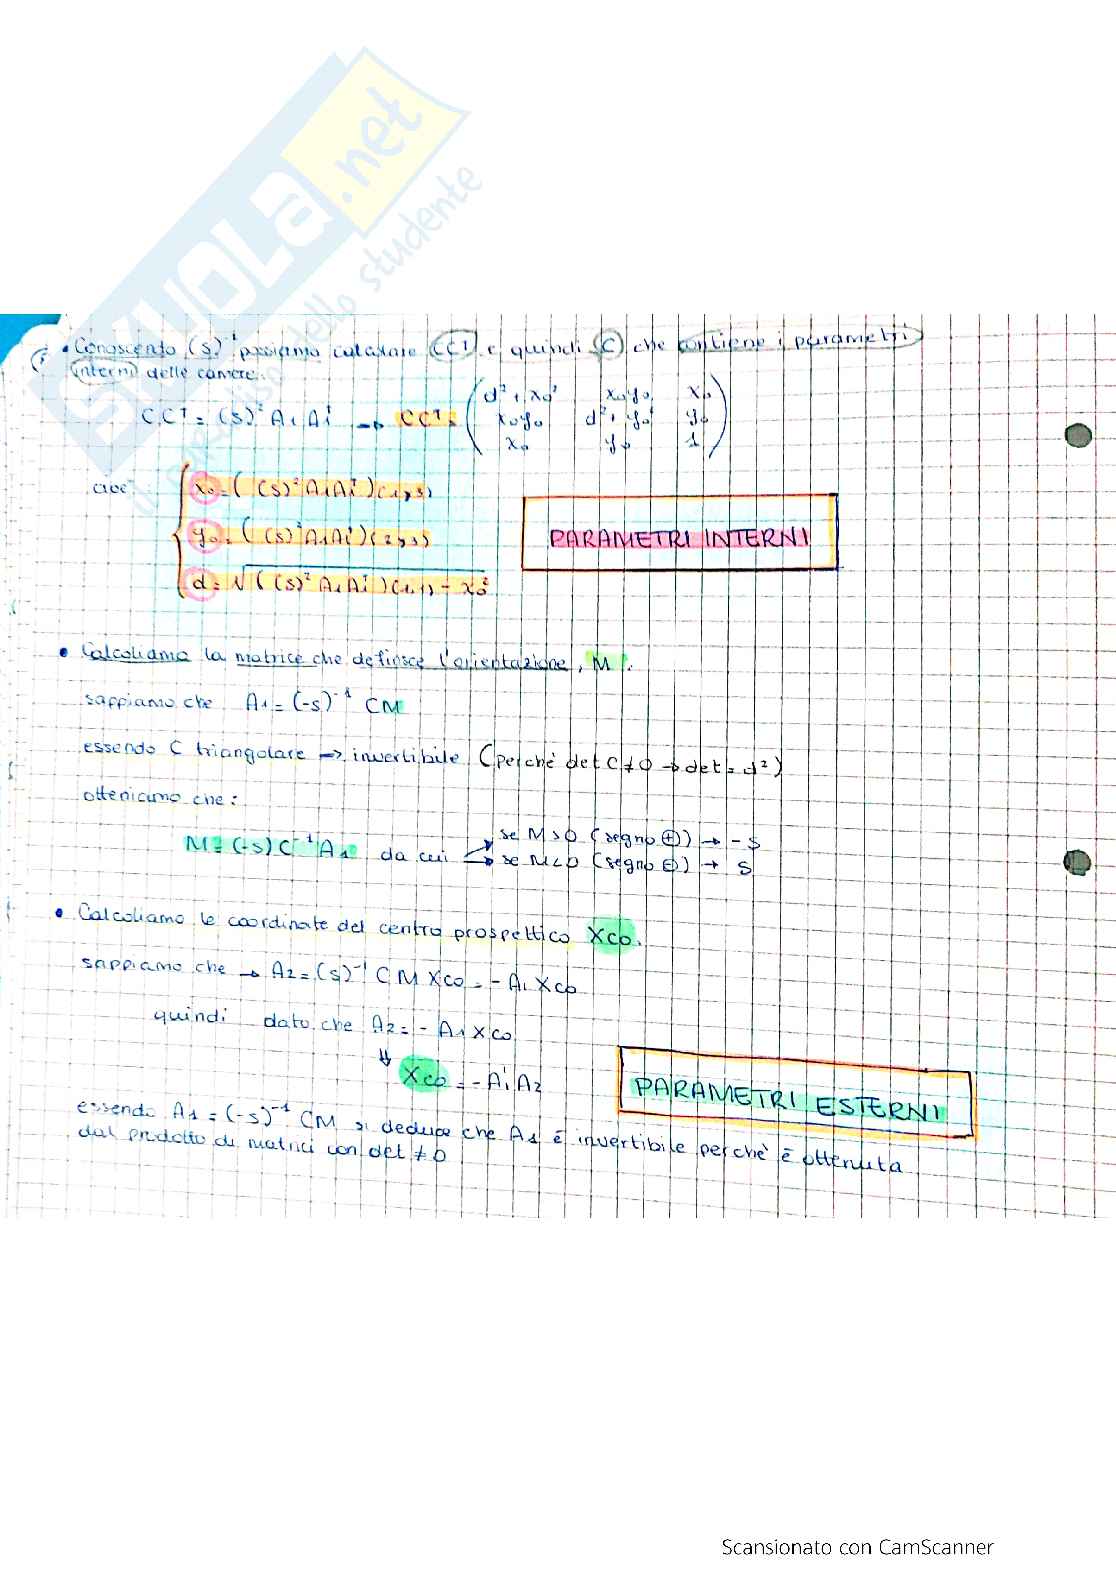 SKUOLA.net
il paradiso dello studente
• Conoscendo (s)⁻¹ possiamo calcolare CCᵀ e quindi C che contiene i parametri
interni delle camere.
CCᵀ = (s)² A₁A₁ᵀ → CCᵀ = ( d² + x₀² x₀y₀ x₀
x₀y₀ d² + y₀² y₀
x₀ y₀ 1 )
cioè: { x₀ = ((s)² A₁A₁ᵀ)(1,3)
y₀ = ((s)² A₁A₁ᵀ)(2,3)
d = √((s)² A₁A₁ᵀ)(1,1) - x₀²
PARAMETRI INTERNI
• Calcoliamo la matrice che definisce l'orientazione, M.
sappiamo che A₁ = (-s)⁻¹ CM
essendo C triangolare → invertibile (perchè det C ≠ 0 → det = d²)
otteniamo che:
M = (-s) C⁻¹ A₁ da cui se M > 0 (segno ⊕) → - s
se M < 0 (segno ⊖) → s
• Calcoliamo le coordinate del centro prospettico Xco.
sappiamo che → A₂ = (s)⁻¹ C M Xco = - A₁ Xco
quindi dato che A₂ = - A₁ Xco
⇓
Xco = - A₁⁻¹ A₂
PARAMETRI ESTERNI
essendo A₁ = (-s)⁻¹ CM si deduce che A₁ è invertibile perchè è ottenuta
dal prodotto di matrici con det ≠ 0
Scansionato con CamScanner